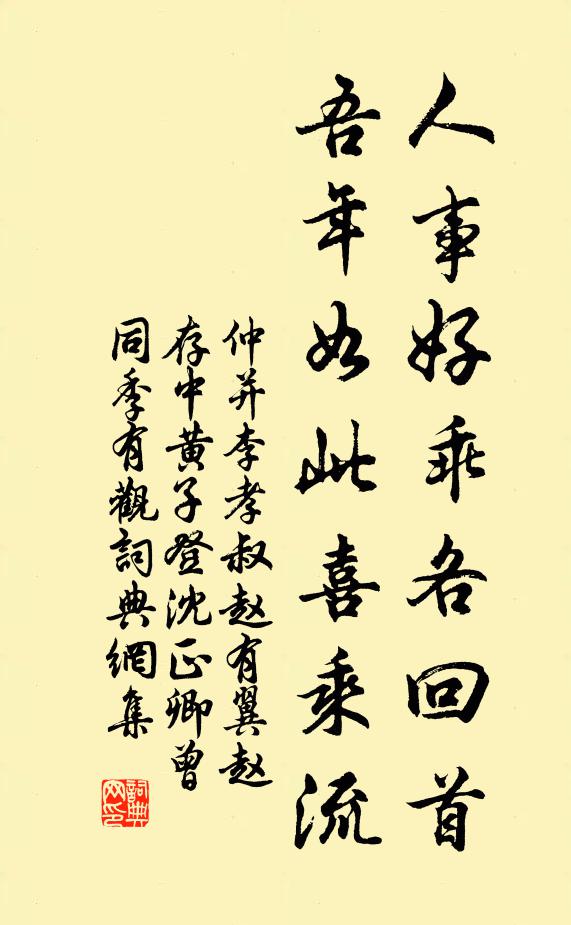 人事好乖各回首
吾年如此喜乘流
仲并李孝叔赵有翼赵
存中黄子登沈正卿曾
同季有觀詞典網集
詞典
网印